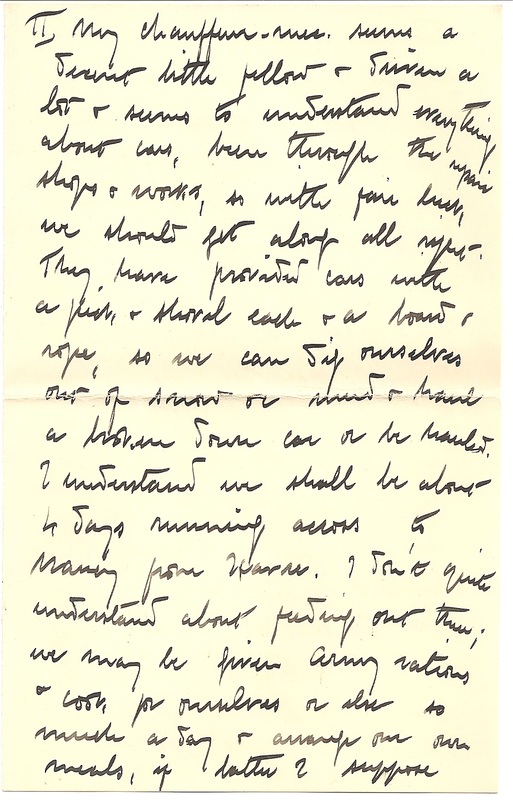 II, My chauffeur-mec. seems a
decent little fellow & driven a
lot & seems to understand everything
about cars, been through the repair
shops & works, so with fair luck,
we should get along all right.
They have provided cars with
a pick, & shoval each & a board &
rope, so we can dig ourselves
out of snow or mud & haul
a broken down car or be hauled.
I understand we shall be about
4 days running across to
Nancy from Havre. I don't quite
understand about feeding out there;
we may be given army rations
& cook for ourselves or else so
much a day & arrange our own
meals, if latter I suppose